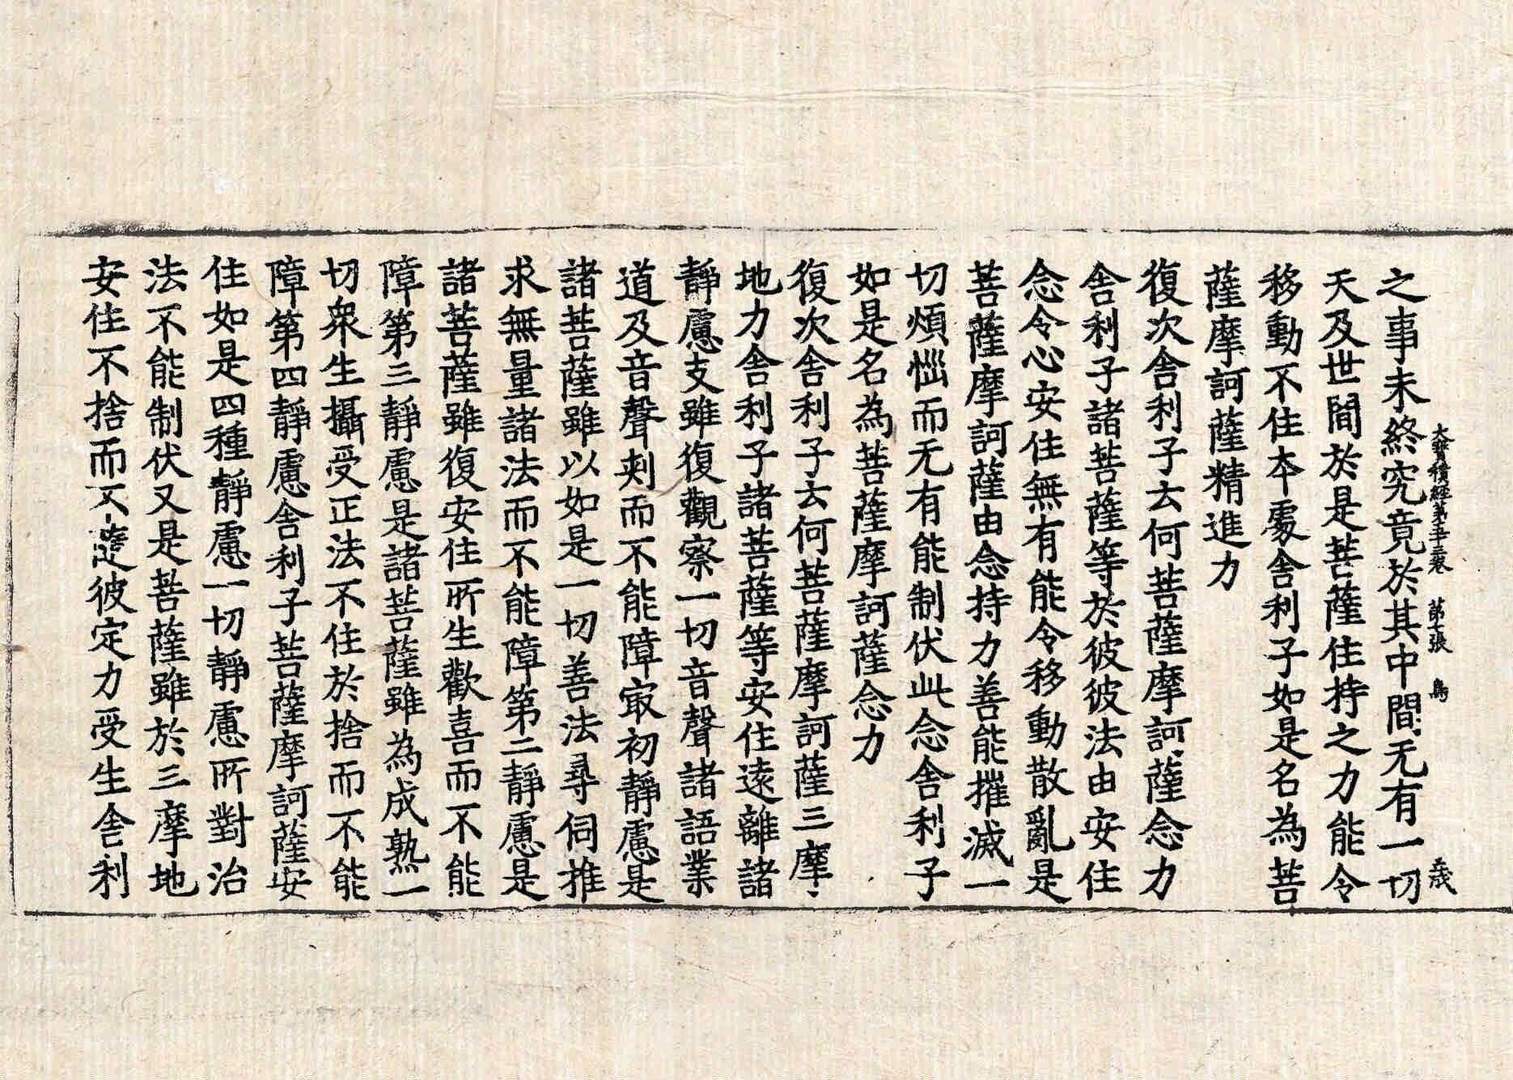 大寶積經第五十三卷　第二張　鳥
之事未終究竟於其中間无有一切
天及世間於是菩薩住持之力能令
移動不住本處舍利子如是名為菩
薩摩訶薩精進力
復次舍利子云何菩薩摩訶薩念力
舍利子諸菩薩等於彼彼法由安住
念令心安住無有能令移動散亂是
菩薩摩訶薩由念持力善能摧滅一
切煩惱而无有能制伏此念舍利子
如是名為菩薩摩訶薩念力
復次舍利子云何菩薩摩訶薩三摩
地力舍利子諸菩薩等安住遠離諸
靜慮支雖復觀察一切音聲諸語業
道及音聲刾而不能障㝡初靜慮是
諸菩薩雖以如是一切善法尋伺推
求無量諸法而不能障第二靜慮是
諸菩薩雖復安住所生歡喜而不能
障第三靜慮是諸菩薩雖為成熟一
切衆生攝受正法不住於捨而不能
障第四靜慮舍利子菩薩摩訶薩安
住如是四種靜慮一切靜慮所對治
法不能制伏又是菩薩雖於三摩地
安住不捨而不隨彼定力受生舍利